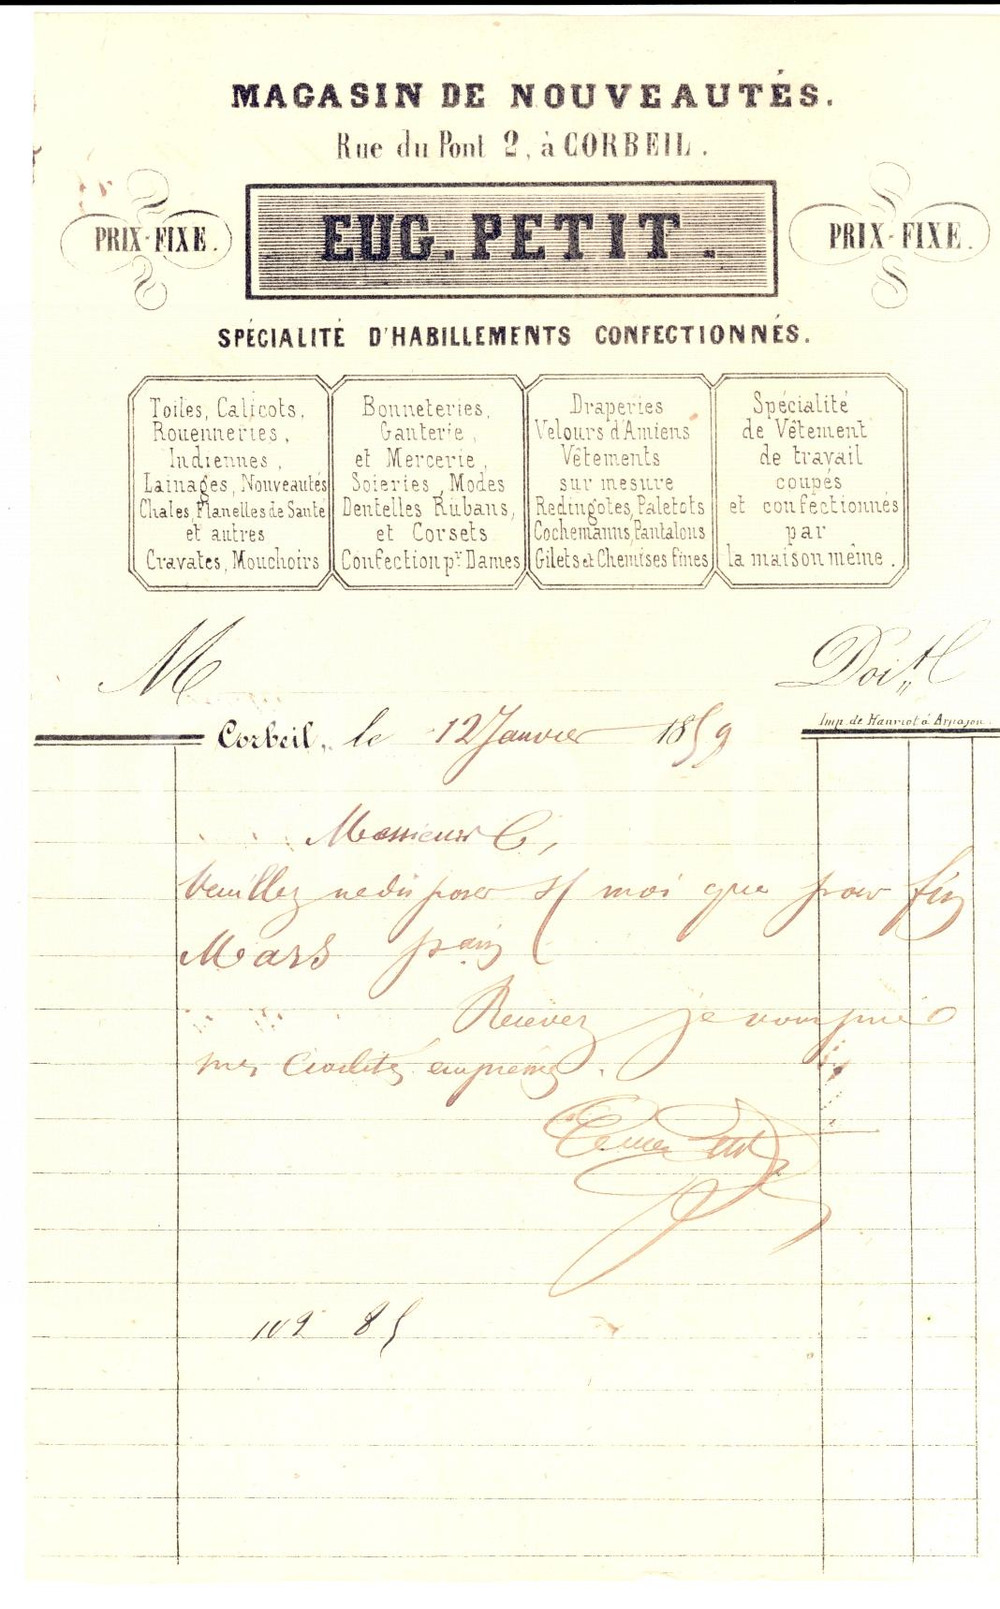 MAGASIN DE NOUVEAUTÉS.
Rue du Pont 2, à CORBEIL.
PRIX-FIXE.
EUG. PETIT.
PRIX-FIXE.
SPÉCIALITÉ D'HABILLEMENTS CONFECTIONNÉS.
Toiles, Calicots,
Rouenneries,
Indiennes,
Lainages, Nouveautés
Chales, Flanelles de Santé
et autres
Cravates, Mouchoirs
Bonneteries,
Ganterie,
et Mercerie,
Soieries, Modes
Dentelles Rubans,
et Corsets
Confection pr. Dames
Draperies
Velours d'Amiens
Vêtements
sur mesure
Redingotes, Paletots
Cochemanns, Pantalons
Gilets et Chemises fines
Spécialité
de Vêtement
de travail
coupés
et confectionnés
par
la maison même.
M
Doit
Imp. de Hanriot à Arpajon.
Corbeil, le 12 Janvier 1859
Messieurs C,
Veuillez ne disposer s/ moi que pour fin
Mars
Recevez je vous prie
mes
109 85